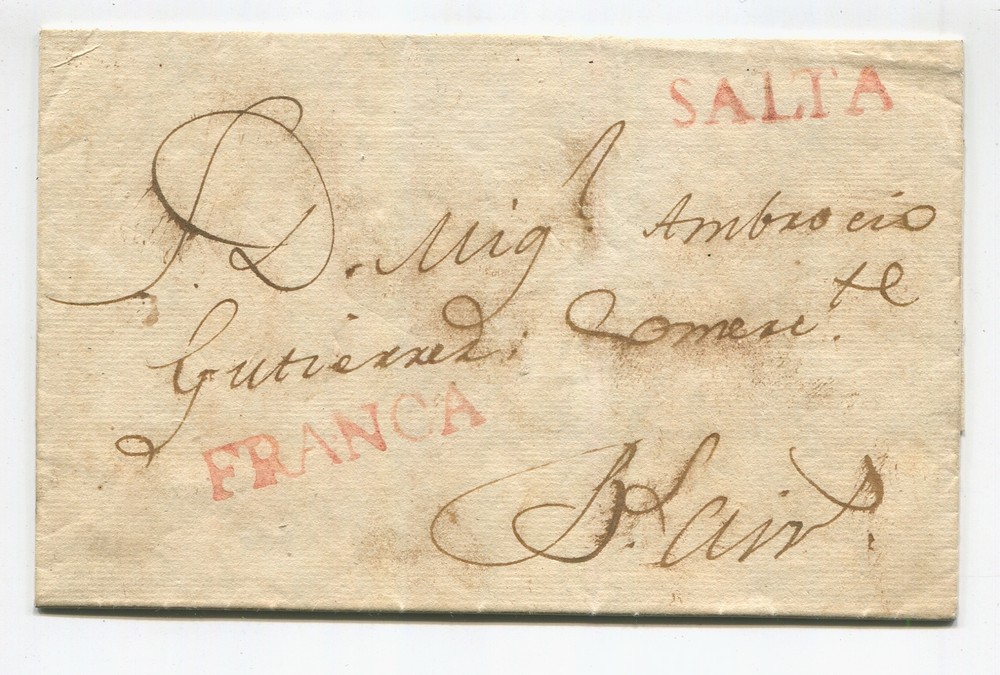 SALTA
D. Mig.l Ambrocio
Gutierrez; Comerc.te
FRANCA
B.s Air.s